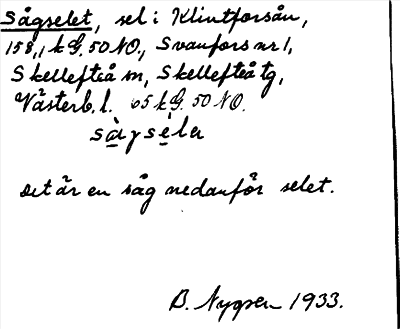 Sågselet, sel i Klintforsån,
158,1 k G. 50 NO., Svanfors nr 1,
Skellefteå sn, Skellefteå tg,
Västerb. l. 65 k G. 50 NO.
sàgséla
Det är en såg nedanför selet.
B. Nygren 1933.